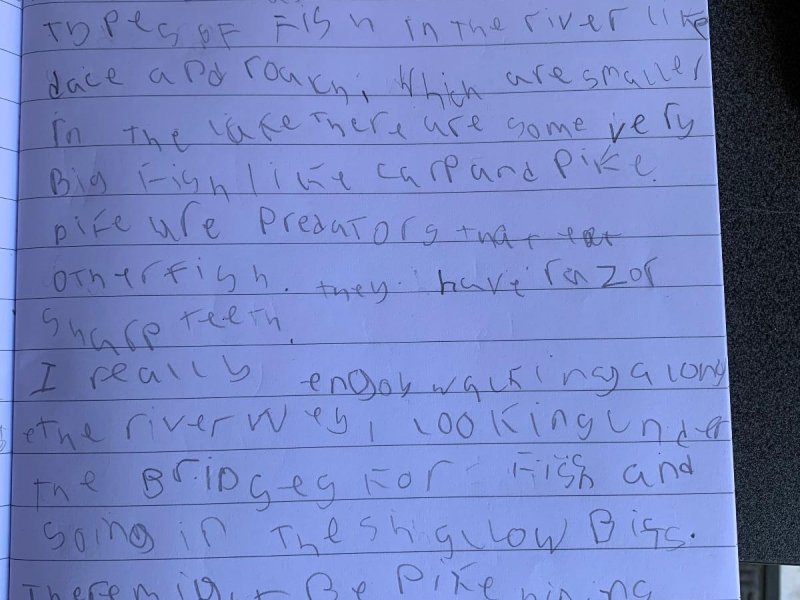 types of Fish in the river like
dace and roach, Which are smaller
in the lake There are some very
Big Fish like carp and Pike.
pike are Predators that eat
other fish. they have razor
sharp teeth.
I really engoy walking along
the river Wey, looking under
the Bridges For Fish and
going in the shallow Bits.
There might Be Pike hiding